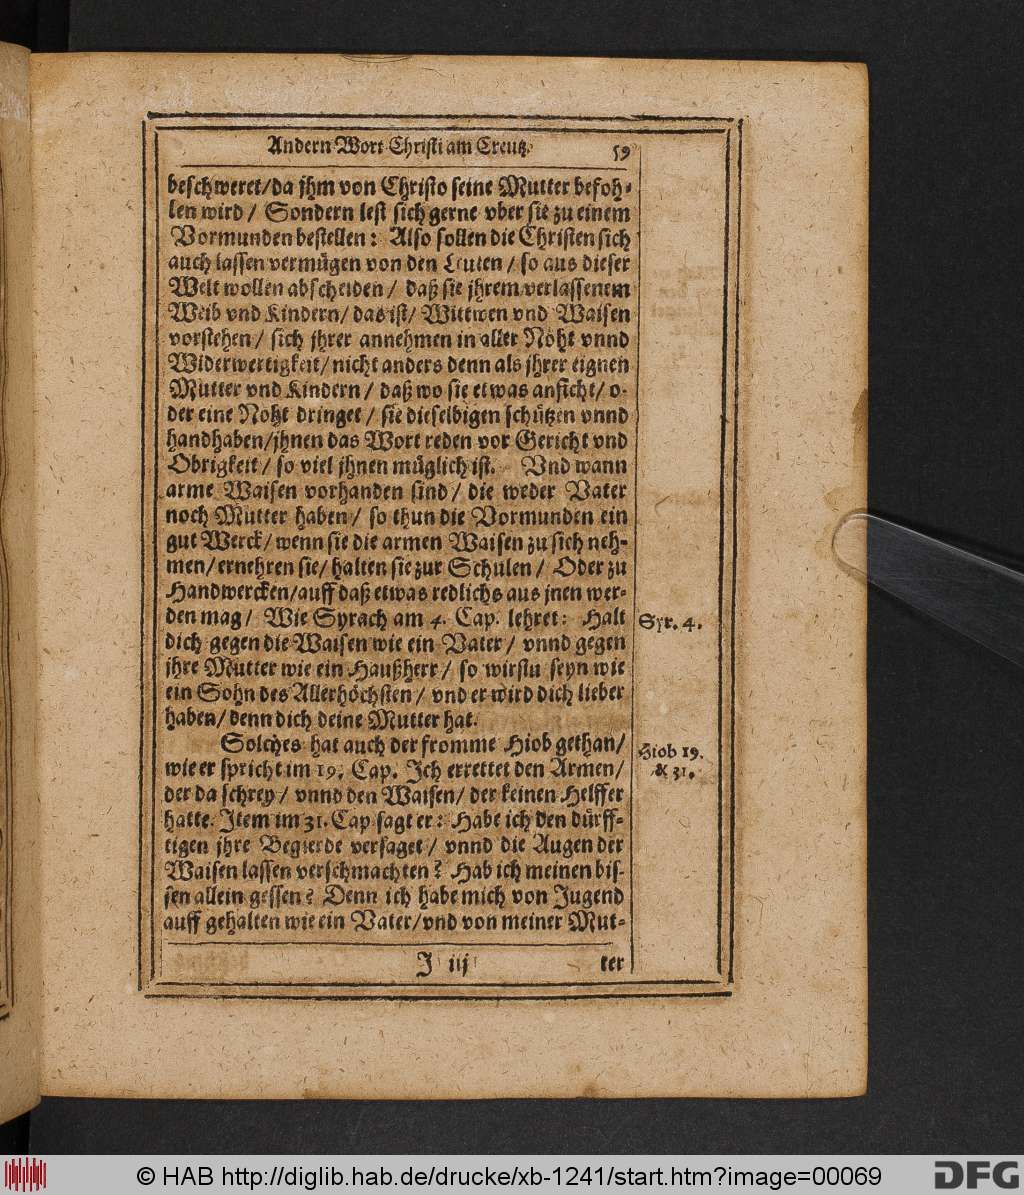 Andern Wort Christi am Creutz. 59
beschweret/ da jhm von Christo seine Mutter befoh-
len wird / Sondern lest sich gerne vber sie zu einem
Vormunden bestellen: Also sollen die Christen sich
auch lassen vermügen von den Leuten / so aus dieser
Welt wollen abscheiden / daß sie jhrem verlassenem
Weib vnd Kindern/ das ist/ Wittwen vnd Waisen
vorstehen/ sich jhrer annehmen in aller Noht vnnd
Widerwertigkeit/ nicht anders denn als jhrer eignen
Mutter vnd Kindern / daß wo sie etwas anficht/ o-
der eine Noht dringet / sie dieselbigen schützen vnnd
handhaben/jhnen das Wort reden vor Gericht vnd
Obrigkeit / so viel jhnen müglich ist. Vnd wann
arme Waisen vorhanden sind / die weder Vater
noch Mutter haben / so thun die Vormunden ein
gut Werck/ wenn sie die armen Waisen zu sich neh-
men/ ernehren sie/ halten sie zur Schulen / Oder zu
Handwercken/auff daß etwas redlichs aus jnen wer-
den mag / Wie Syrach am 4. Cap. lehret: Halt
dich gegen die Waisen wie ein Vater / vnnd gegen
jhre Mutter wie ein Haußherr / so wirstu seyn wie
ein Sohn des Allerhöchsten / vnd er wird dich lieber
haben/ denn dich deine Mutter hat.
Syr. 4.
Solches hat auch der fromme Hiob gethan/
wie er spricht im 19. Cap. Ich errettet den Armen/
der da schrey / vnnd den Waisen/ der keinen Helffer
hatte. Item im 31. Cap sagt er: Habe ich den dürff-
tigen jhre Begierde versaget / vnnd die Augen der
Waisen lassen verschmachten? Hab ich meinen bis-
sen allein gessen? Denn ich habe mich von Jugend
auff gehalten wie ein Vater/ vnd von meiner Mut-
Hiob 19.
& 31.
J iij ter
© HAB http://diglib.hab.de/drucke/xb-1241/start.htm?image=00069
DFG